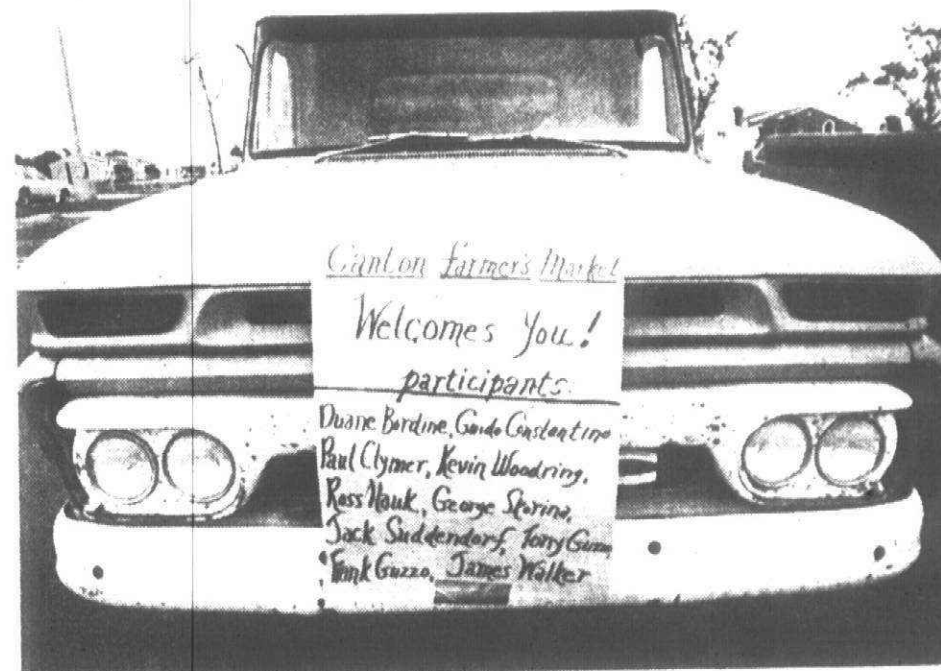 Canton Farmer's Market
Welcomes You!
participants
Duane Bordine, Guido Constantino
Paul Clymer, Kevin Woodring,
Ross Hauk, George Storino,
Jack Suddendorf, Tony Guzzo,
Frank Guzzo, James Walker